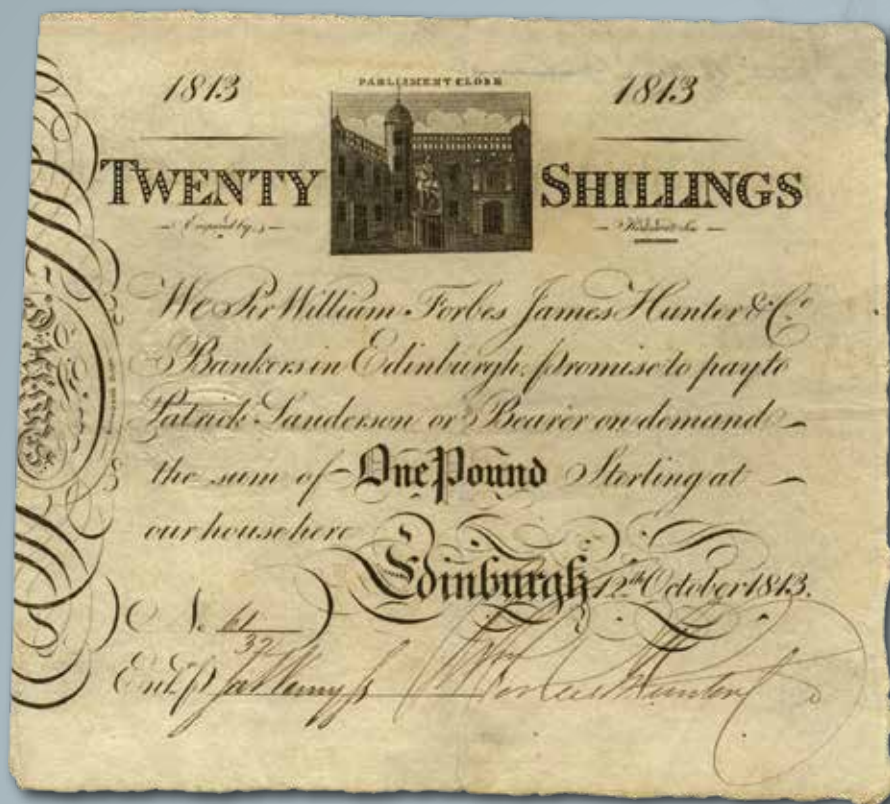 PARLIAMENT CLOSE
1813 1813
TWENTY SHILLINGS
Engraved by Kirkwood & Son
We Sir William Forbes James Hunter & Co.
Bankers in Edinburgh, promise to pay to
Patrick Sanderson or Bearer on demand
the sum of One Pound Sterling at
our house here
Edinburgh 12th October 1813.
No. 61
32
Entd. p